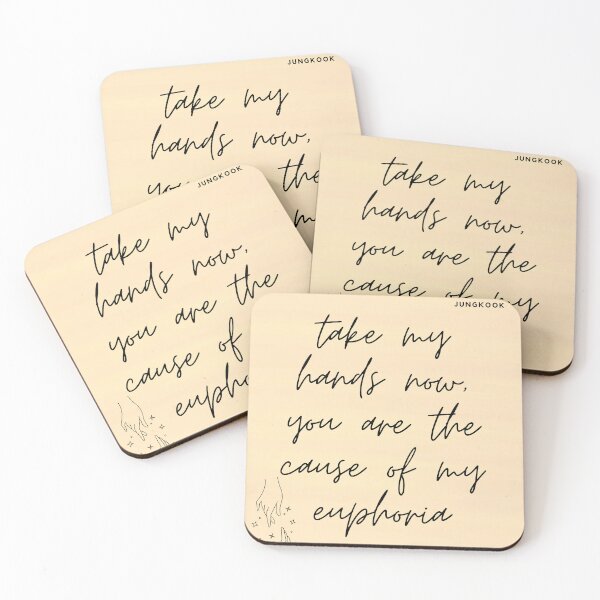 JUNGKOOK
take my
hands now,
you are the
JUNGKOOK
take my
hands now,
you are the
cause of my
JUNGKOOK
take my
hands now,
you are the
cause of
euphoria
JUNGKOOK
take my
hands now,
you are the
cause of my
euphoria